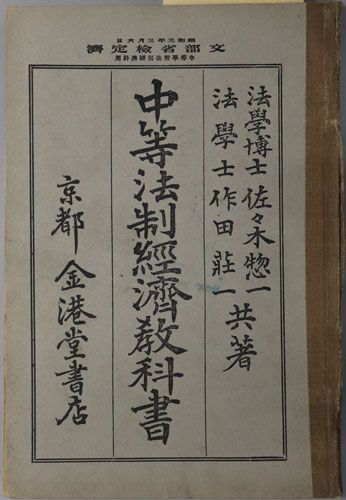 昭和三年三月六日
文部省検定済
中等學校法制經濟科用
法學博士 佐々木惣一
法學士 作田莊一 共著
中等法制經濟教科書
京都 金港堂書店